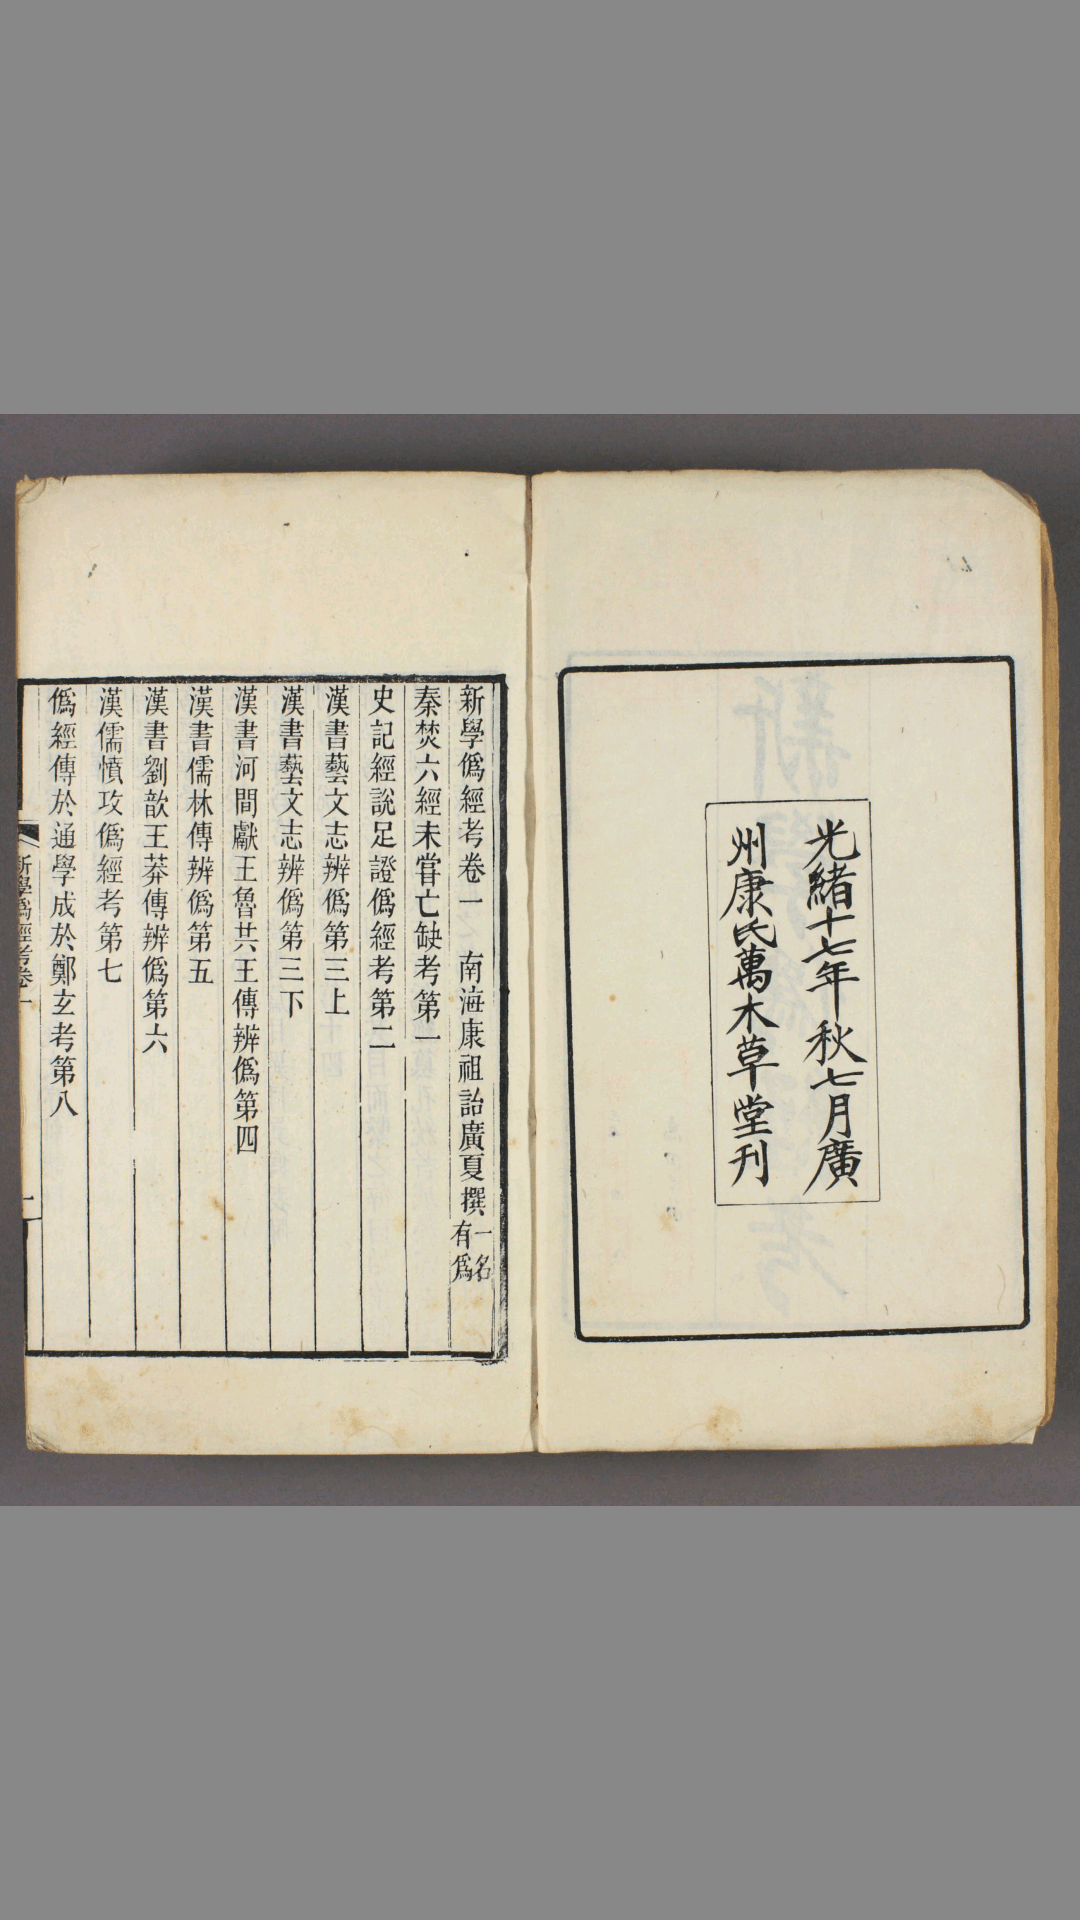 光緒十七年秋七月廣
州康氏萬木草堂刊
新學僞經考卷一 南海康祖詒廣夏撰 一名有爲
秦焚六經未嘗亡缺考第一
史記經說足證僞經考第二
漢書藝文志辨僞第三上
漢書藝文志辨僞第三下
漢書河間獻王魯共王傳辨僞第四
漢書儒林傳辨僞第五
漢書劉歆王莽傳辨僞第六
漢儒憤攻僞經考第七
僞經傳於通學成於鄭玄考第八
新學僞經考卷一
一